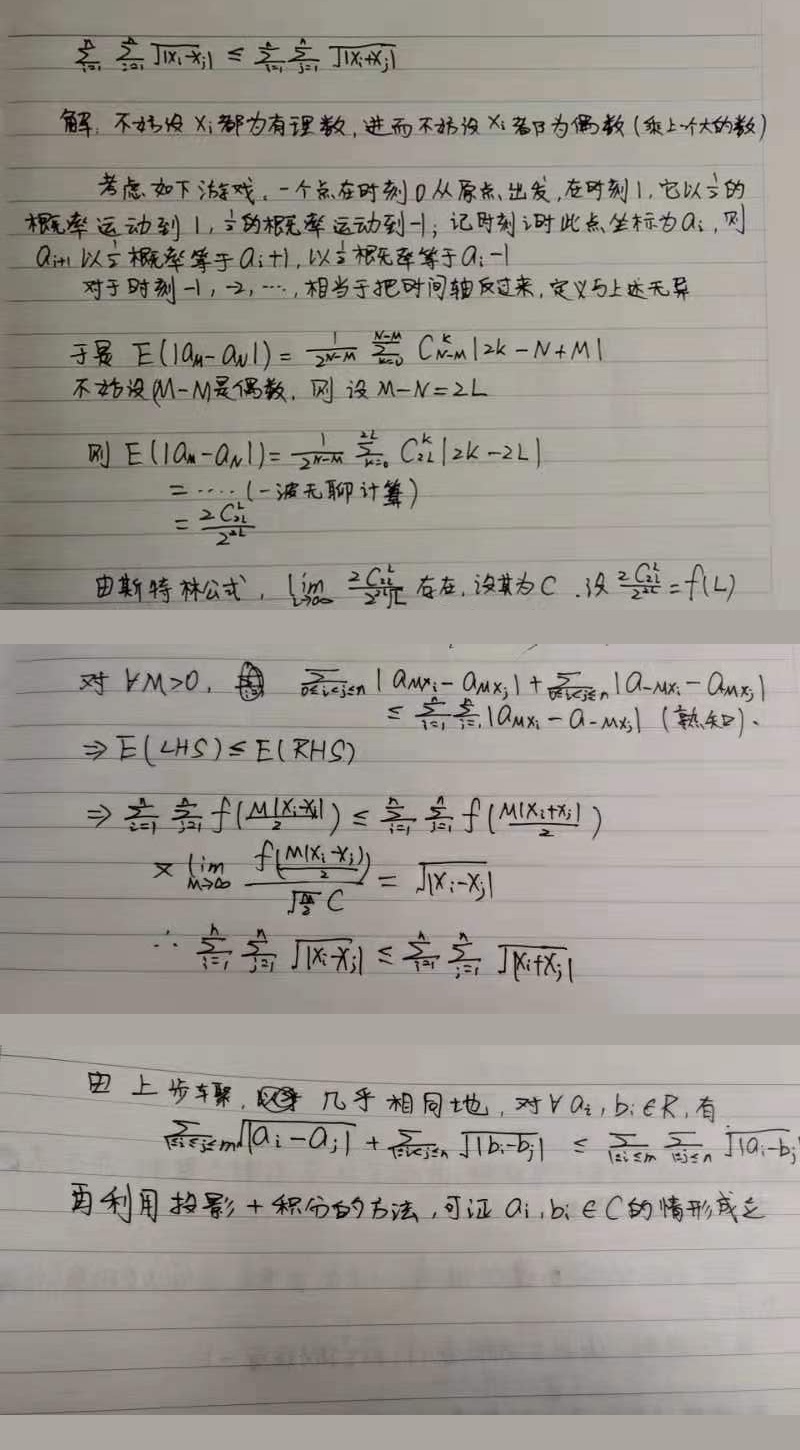 $\sum_{i=1}^{n} \sum_{j=1}^{n} \sqrt{|x_i-x_j|} \leq \sum_{i=1}^{n} \sum_{j=1}^{n} \sqrt{|x_i+x_j|}$
解: 不妨设 $x_i$ 都为有理数, 进而不妨设 $x_i$ 都为偶数 (乘上一个大的数)
考虑如下游戏。一个点在时刻0从原点出发, 在时刻1, 它以 $\frac{1}{2}$ 的
概率运动到 1, $\frac{1}{2}$ 的概率运动到 -1; 记时刻 i 时此点坐标为 $a_i$, 则
$a_{i+1}$ 以 $\frac{1}{2}$ 概率等于 $a_i+1$, 以 $\frac{1}{2}$ 概率等于 $a_i-1$
对于时刻 -1, -2, ..., 相当于把时间轴反过来, 定义与上述无异
于是 $E(|a_M-a_N|) = \frac{1}{2^{N-M}} \sum_{k=0}^{N-M} C_{N-M}^{k} |2k-N+M|$
不妨设 (M-N) 是偶数, 则设 M-N=2L
则 $E(|a_M-a_N|) = \frac{1}{2^{N-M}} \sum_{k=0}^{2L} C_{2L}^{k} |2k-2L|$
= .... (一波无聊计算)
$= \frac{2C_{2L}^{L}}{2^{2L}}$
由斯特林公式, $\lim_{L\to\infty} \frac{2C_{2L}^{L}}{2^{2L}\sqrt{L}}$ 存在, 设其为 C. 设 $\frac{2C_{2L}^{L}}{2^{2L}} = f(L)$
对 ∀M>0, $\sum_{0\leq i<j\leq n} |a_{Mx_i}-a_{Mx_j}| + \sum_{0\leq i<j\leq n} |a_{-Mx_i}-a_{Mx_j}|$
$\leq \sum_{i=1}^{n} \sum_{j=1}^{n} |a_{Mx_i}-a_{-Mx_j}|$ (熟知).
⇒ E(LHS) ≤ E(RHS)
⇒ $\sum_{i=1}^{n} \sum_{j=1}^{n} f(\frac{M|x_i-x_j|}{2}) \leq \sum_{i=1}^{n} \sum_{j=1}^{n} f(\frac{M|x_i+x_j|}{2})$
又 $\lim_{M\to\infty} \frac{f(\frac{M|x_i-x_j|}{2})}{\sqrt{\frac{M}{2}} C} = \sqrt{|x_i-x_j|}$
∴ $\sum_{i=1}^{n} \sum_{j=1}^{n} \sqrt{|x_i-x_j|} \leq \sum_{i=1}^{n} \sum_{j=1}^{n} \sqrt{|x_i+x_j|}$
由上步骤, 几乎相同地, 对 ∀ $a_i, b_i \in R$, 有
$\sum_{1\leq i<j\leq m} \sqrt{|a_i-a_j|} + \sum_{1\leq i<j\leq n} \sqrt{|b_i-b_j|} \leq \sum_{1\leq i\leq m} \sum_{1\leq j\leq n} \sqrt{|a_i-b_j|}$
再利用投影+积分的方法, 可证 $a_i, b_i \in C$ 的情形成立